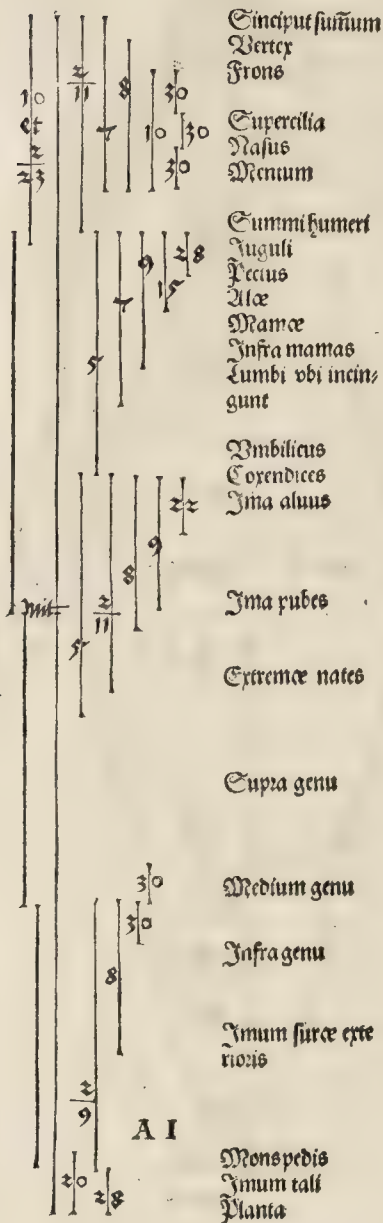 Sinciput sum̃um
Vertex
Frons
Supercilia
Nasus
Mentum
Summi humeri
Juguli
Pectus
Alæ
Mamæ
Infra mamas
Lumbi vbi incin⸗
gunt
Vmbilicus
Coxendices
Ima aluus
Ima pubes
Extremæ nates
Supra genu
Medium genu
Infra genu
Imum suræ exte
rioris
Mons pedis
Imum tali
Planta
10
et
2
23
2
11
7
8
10
30
30
30
5
7
9
15
28
5
2
11
8
9
22
30
30
8
2
9
20
28
A I